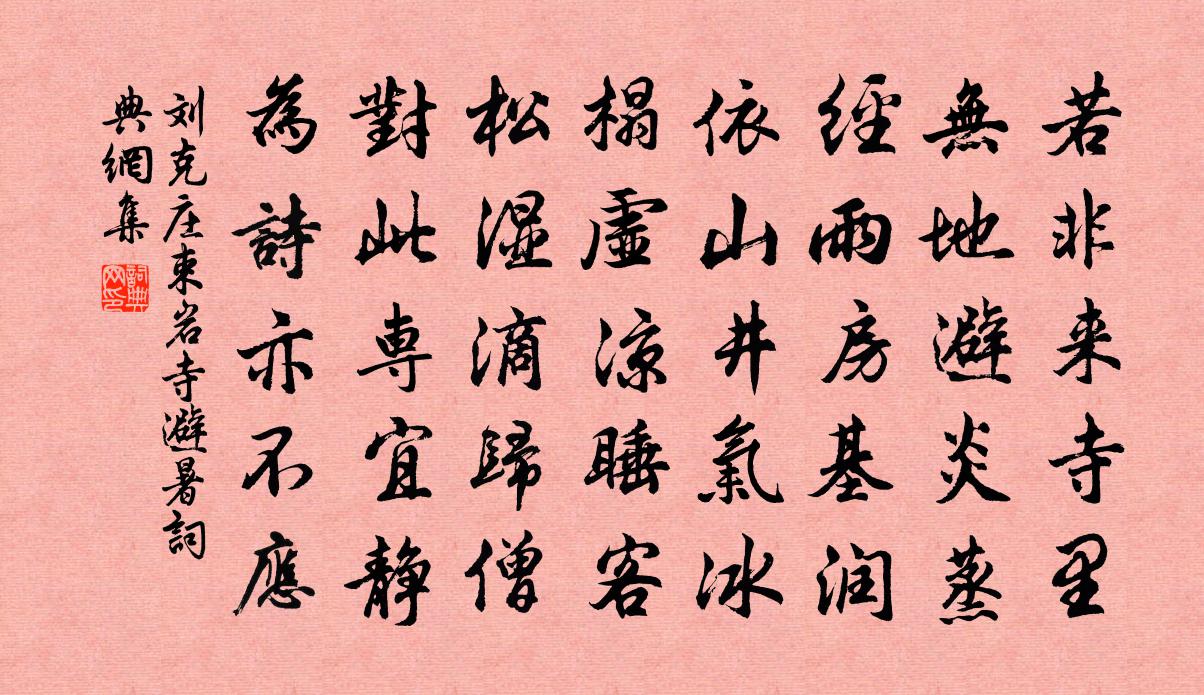 若非来寺里
無地避炎蒸
經雨房基润
依山井氣冰
榻虛凉睡客
松湿滴歸僧
對此專宜静
為詩亦不應
刘克庄東岩寺避暑詞
典網集
詞典网印